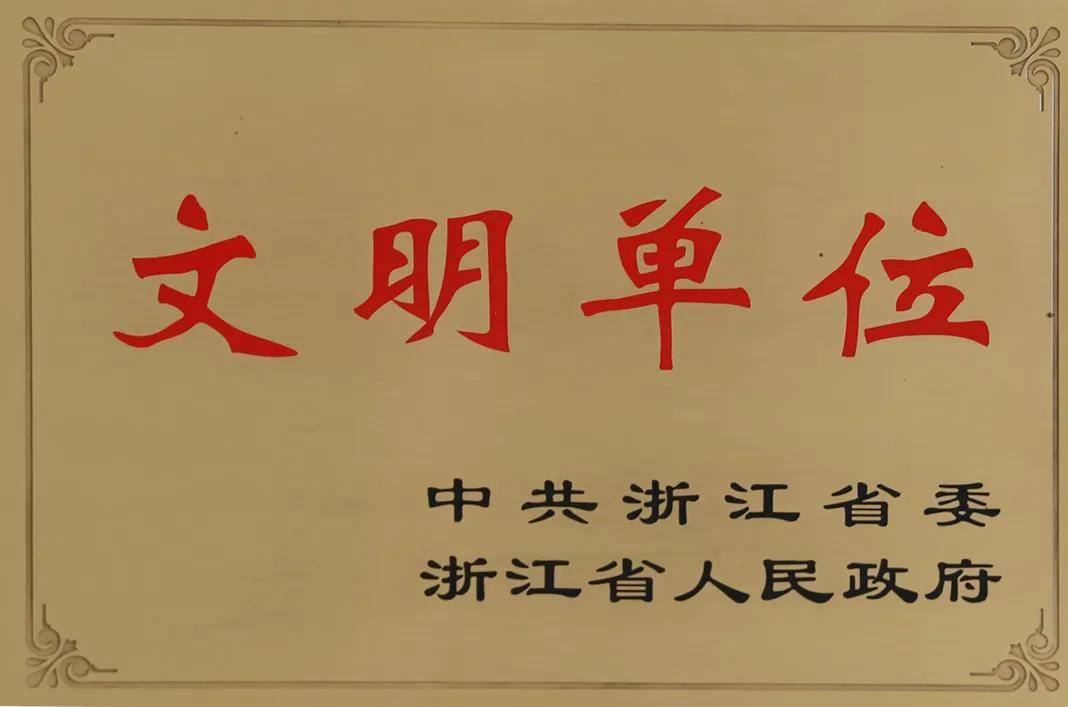 文明单位
中共浙江省委
浙江省人民政府